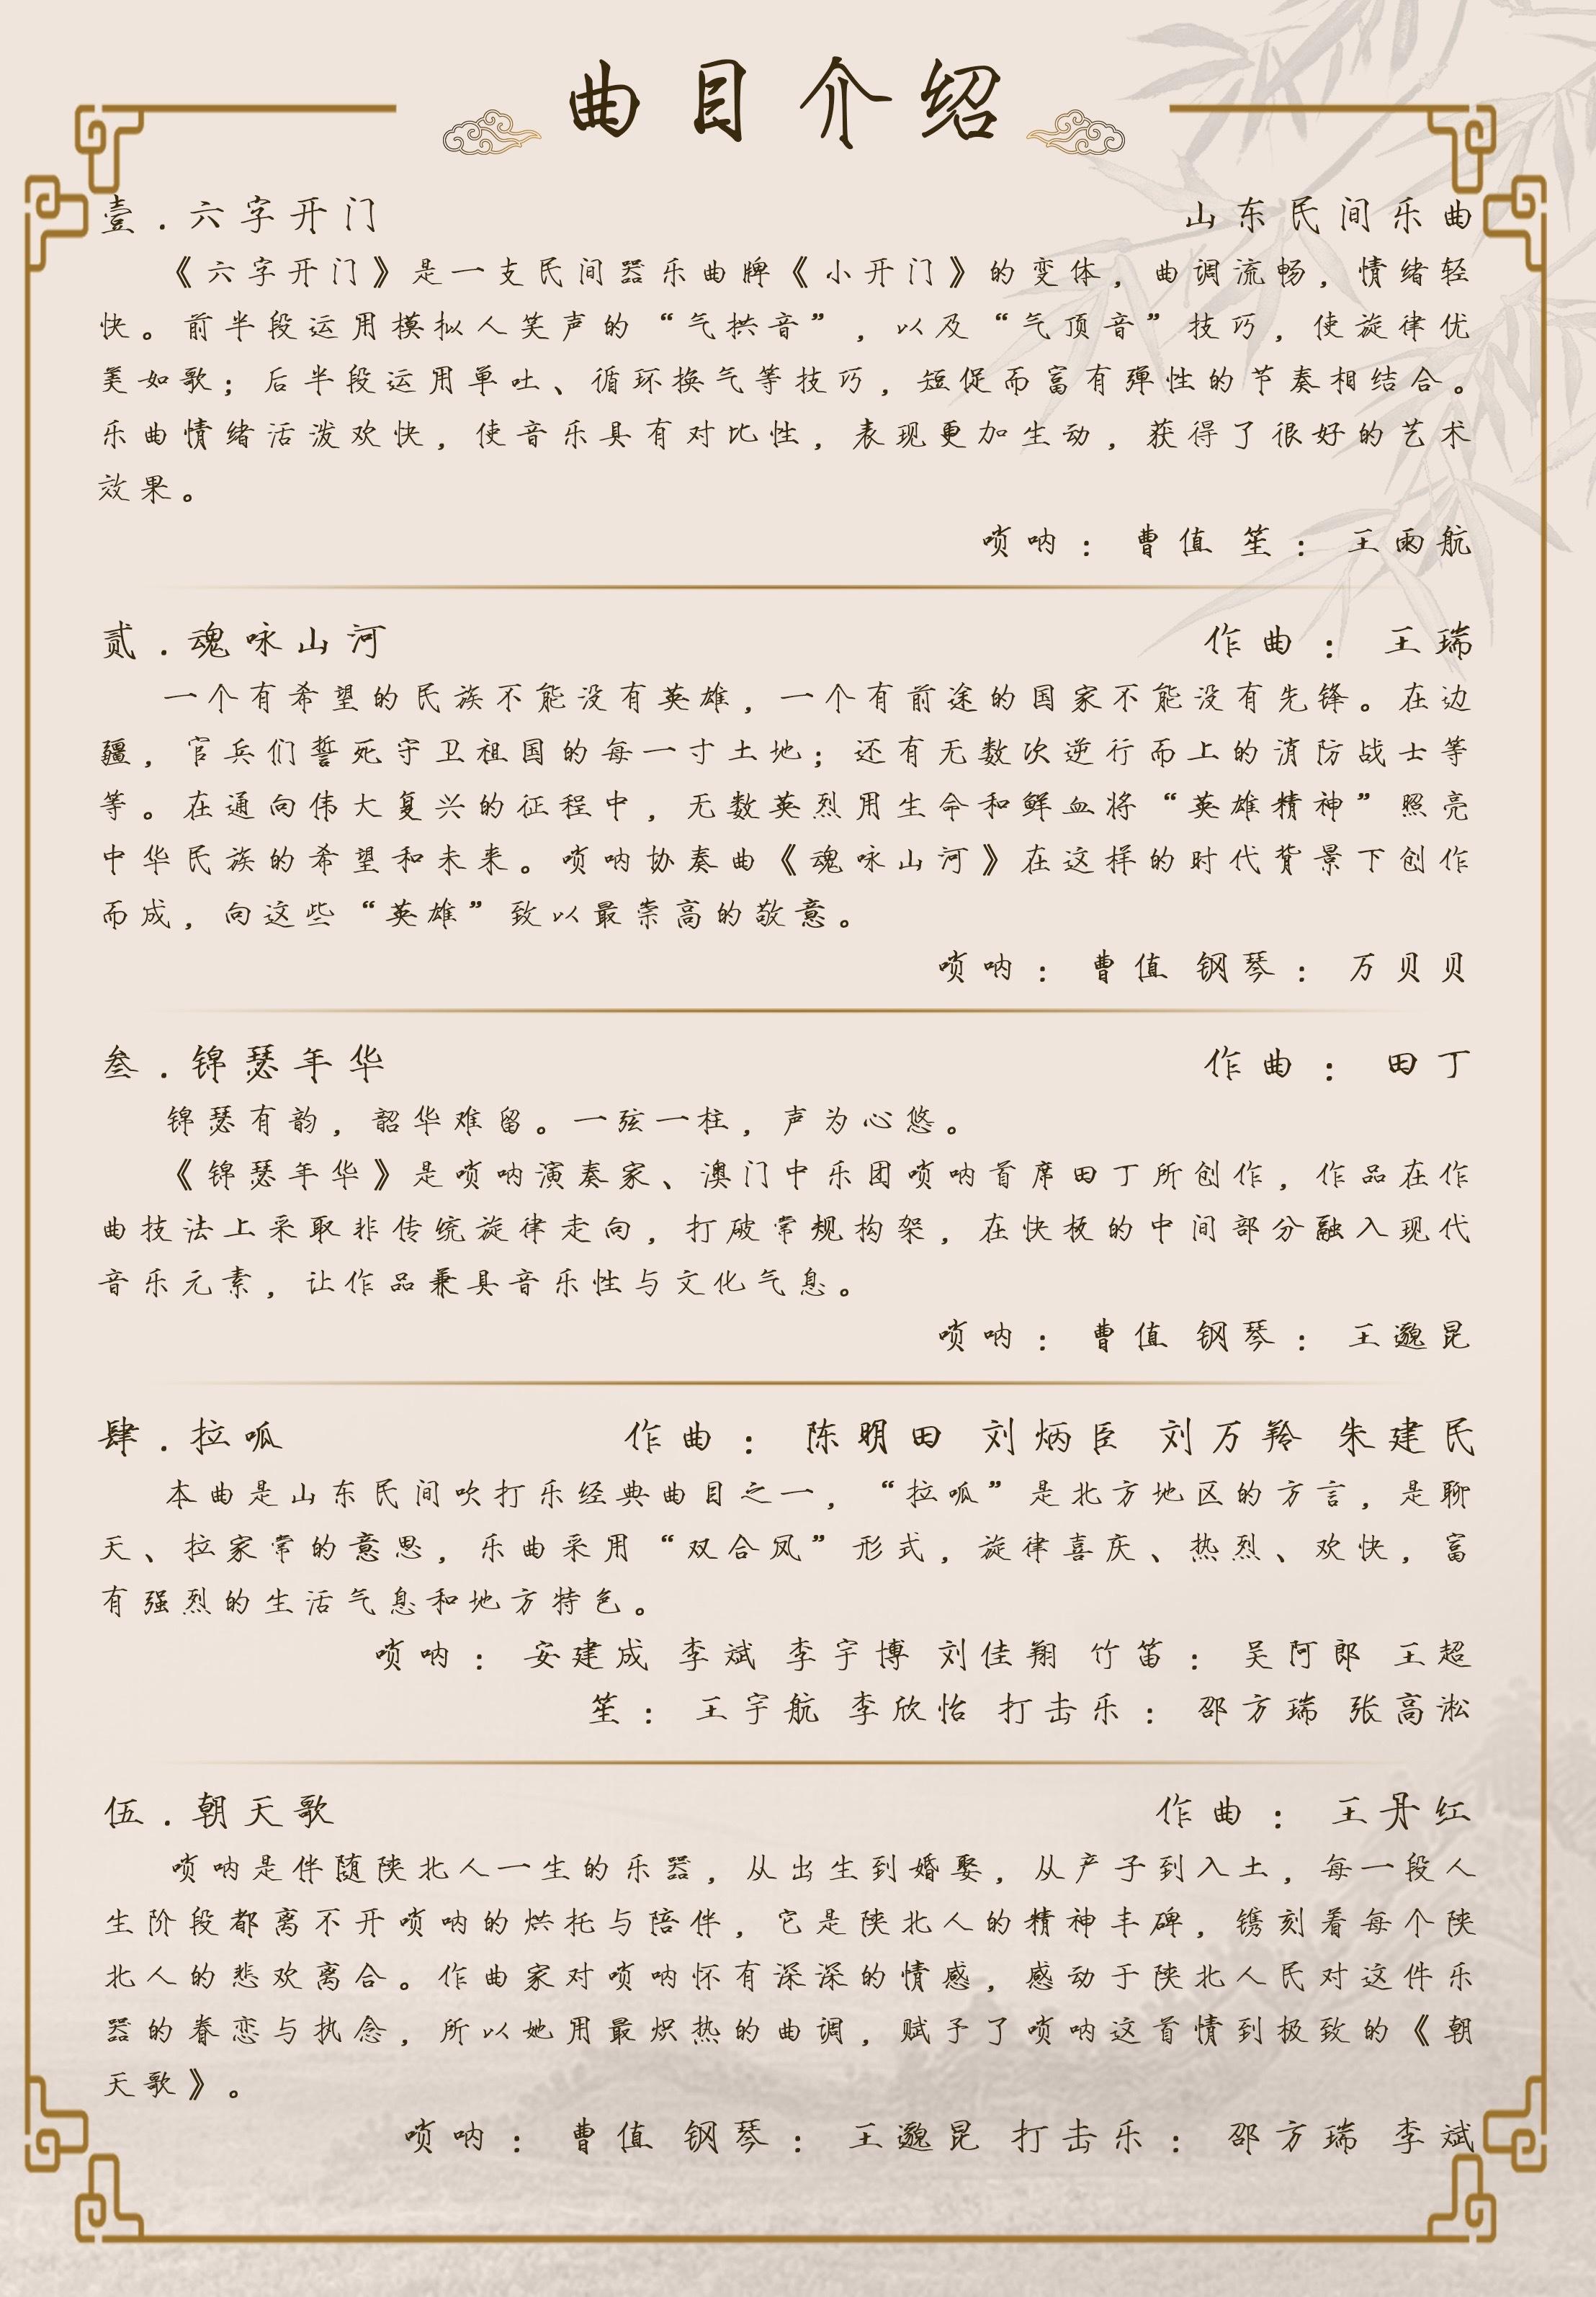 曲目介绍
壹.六字开门 山东民间乐曲
《六字开门》是一支民间器乐曲牌《小开门》的变体，曲调流畅，情绪轻
快。前半段运用模拟人笑声的“气拱音”，以及“气顶音”技巧，使旋律优
美如歌；后半段运用单吐、循环换气等技巧，短促而富有弹性的节奏相结合。
乐曲情绪活泼欢快，使音乐具有对比性，表现更加生动，获得了很好的艺术
效果。
唢呐：曹值 笙：王雨航
贰.魂咏山河 作曲：王瑞
一个有希望的民族不能没有英雄，一个有前途的国家不能没有先锋。在边
疆，官兵们誓死守卫祖国的每一寸土地；还有无数次逆行而上的消防战士等
等。在通向伟大复兴的征程中，无数英烈用生命和鲜血将“英雄精神”照亮
中华民族的希望和未来。唢呐协奏曲《魂咏山河》在这样的时代背景下创作
而成，向这些“英雄”致以最崇高的敬意。
唢呐：曹值 钢琴：万贝贝
叁.锦瑟年华 作曲：田丁
锦瑟有韵，韶华难留。一弦一柱，声为心悠。
《锦瑟年华》是唢呐演奏家、澳门中乐团唢呐首席田丁所创作，作品在作
曲技法上采取非传统旋律走向，打破常规构架，在快板的中间部分融入现代
音乐元素，让作品兼具音乐性与文化气息。
唢呐：曹值 钢琴：王邈昆
肆.拉呱 作曲：陈明田 刘炳臣 刘万羚 朱建民
本曲是山东民间吹打乐经典曲目之一，“拉呱”是北方地区的方言，是聊
天、拉家常的意思，乐曲采用“双合凤”形式，旋律喜庆、热烈、欢快，富
有强烈的生活气息和地方特色。
唢呐：安建成 李斌 李宇博 刘佳翔 竹笛：吴阿郎 王超
笙：王宇航 李欣怡 打击乐：邵方瑞 张高淞
伍.朝天歌 作曲：王丹红
唢呐是伴随陕北人一生的乐器，从出生到婚娶，从产子到入土，每一段人
生阶段都离不开唢呐的烘托与陪伴，它是陕北人的精神丰碑，镌刻着每个陕
北人的悲欢离合。作曲家对唢呐怀有深深的情感，感动于陕北人民对这件乐
器的眷恋与执念，所以她用最炽热的曲调，赋予了唢呐这首情到极致的《朝
天歌》。
唢呐：曹值 钢琴：王邈昆 打击乐：邵方瑞 李斌